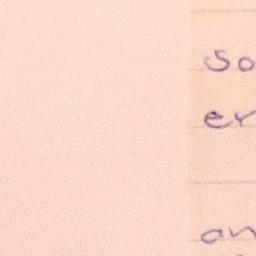 so
er
an